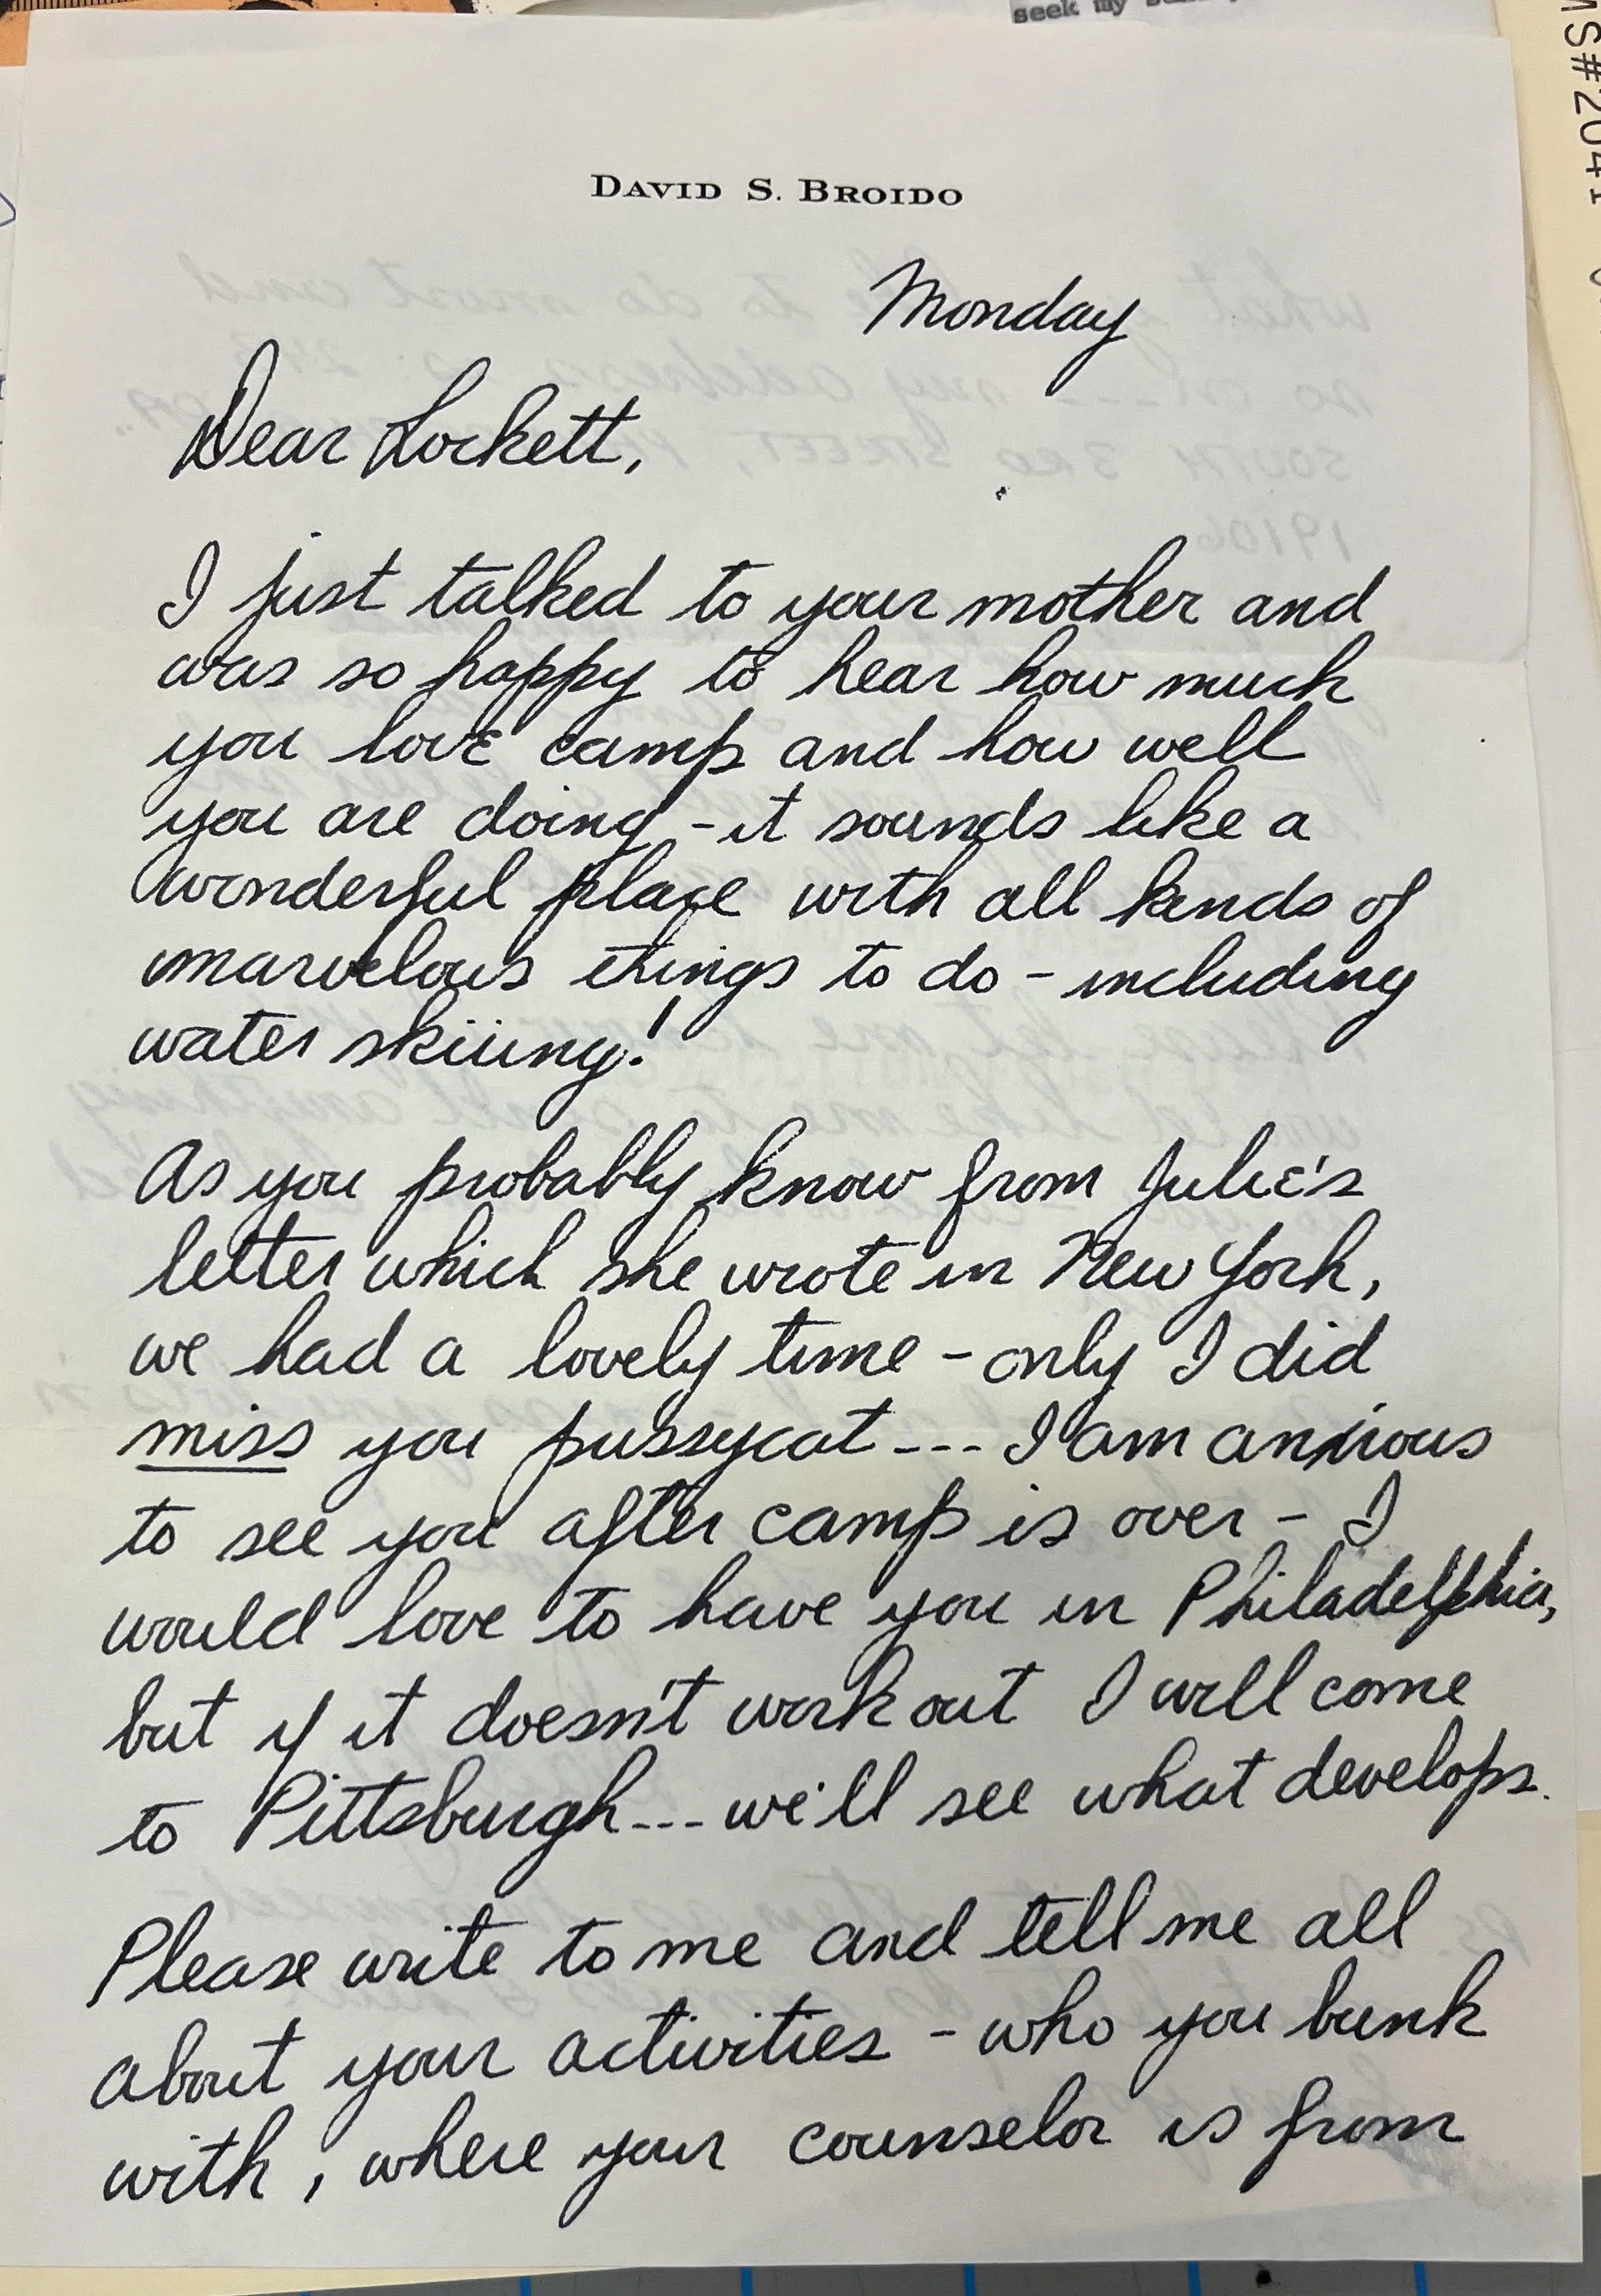 seek my
MS#2041
DAVID S. BROIDO
Monday
Dear Lockett,
I just talked to your mother and
was so happy to hear how much
you love camp and how well
you are doing - it sounds like a
wonderful place with all kinds of
marvelous things to do - including
water skiing!
As you probably know from Julie's
letter which she wrote in New York,
we had a lovely time - only I did
miss you pussycat --- I am anxious
to see you after camp is over - I
would love to have you in Philadelphia,
but if it doesn't work out I will come
to Pittsburgh --- we'll see what develops.
Please write to me and tell me all
about your activities - who you bunk
with, where your counselor is from